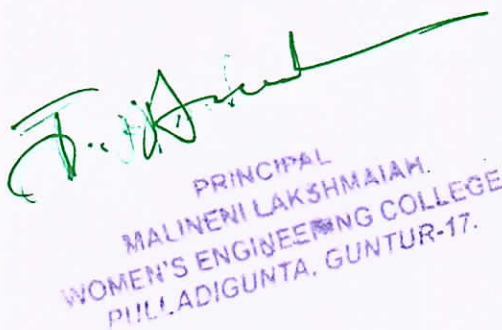 PRINCIPAL
MALINENI LAKSHMAIAH.
WOMEN'S ENGINEERING COLLEGE
PULLADIGUNTA, GUNTUR-17.